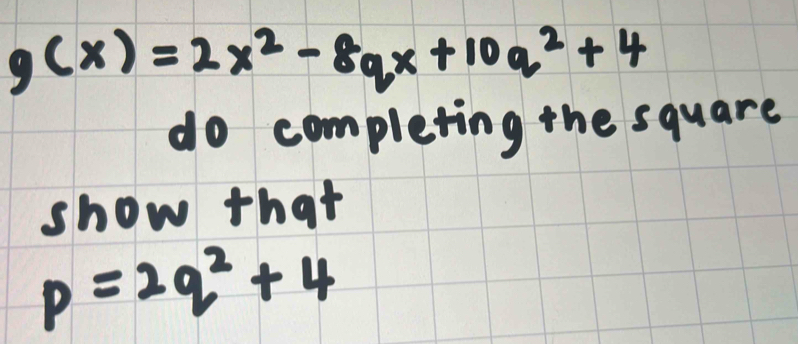 g(x) = 2x² - 8qx + 10q² + 4
do completing the square
show that
p = 2q² + 4